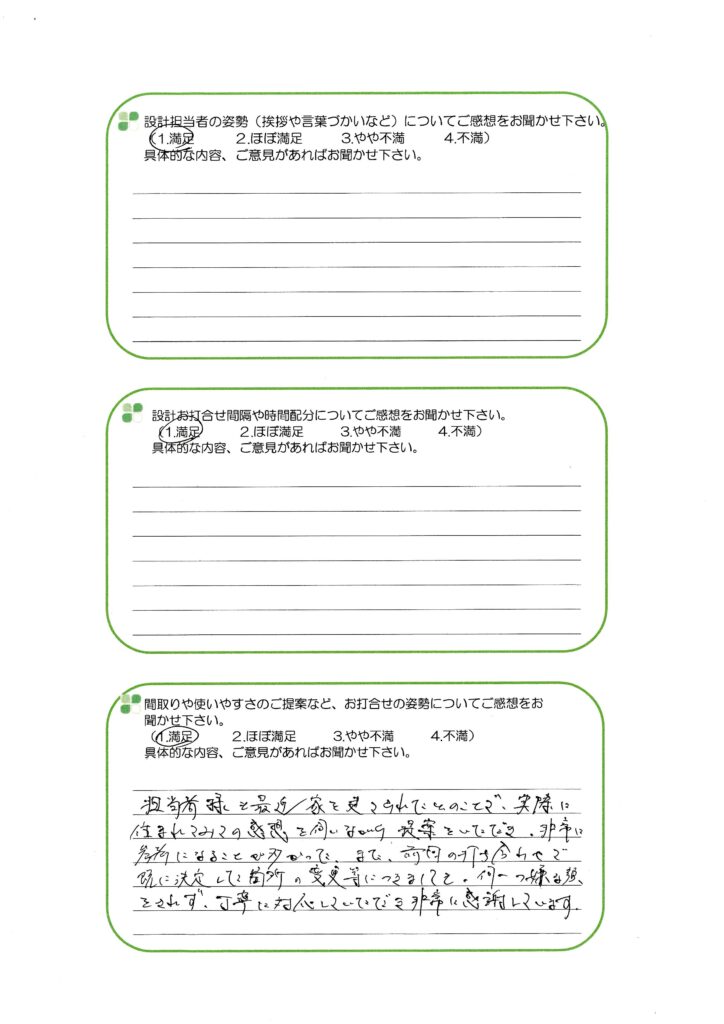 設計担当者の姿勢（挨拶や言葉づかいなど）についてご感想をお聞かせ下さい。
（1.満足 2.ほぼ満足 3.やや不満 4.不満）
具体的な内容、ご意見があればお聞かせ下さい。
設計お打合せ間隔や時間配分についてご感想をお聞かせ下さい。
（1.満足 2.ほぼ満足 3.やや不満 4.不満）
具体的な内容、ご意見があればお聞かせ下さい。
間取りや使いやすさのご提案など、お打合せの姿勢についてご感想をお
聞かせ下さい。
（1.満足 2.ほぼ満足 3.やや不満 4.不満）
具体的な内容、ご意見があればお聞かせ下さい。
担当者様も最近家を建てられたとのことで、実際に
住まれてみての感想を伺いながら提案をいただき、非常に
参考になることが多かった。また、前回の打ち合わせで
既に決定した箇所の変更等につきましても、何一つ嫌な顔
をされず、丁寧に対応していただき非常に感謝しています。